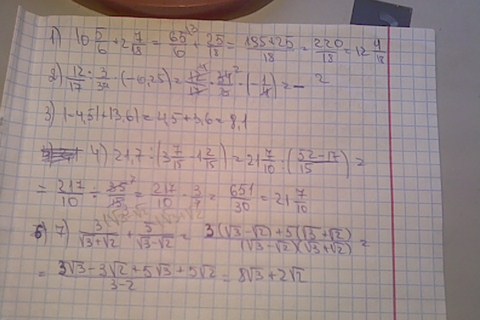 1) 10 5/6 + 2 7/18 = 65/6 ³ + 25/18 = 195+25/18 = 220/18 = 12 4/18
2) 12/17 : 3/34 · (-0,25) = 12/17 · 34/3 · (-1/4) = -2
3) |-4,5|+|3,6| = 4,5+3,6 = 8,1
4) 21,7 : (3 7/15 - 1 2/15) = 21 7/10 : (52-17/15) =
= 217/10 : 35/15 = 217/10 · 3/7 = 651/30 = 21 7/10
7) 3/√3+√2 + 5/√3-√2 = 3(√3-√2)+5(√3+√2)/(√3-√2)(√3+√2) =
= 3√3-3√2+5√3+5√2/3-2 = 8√3+2√2